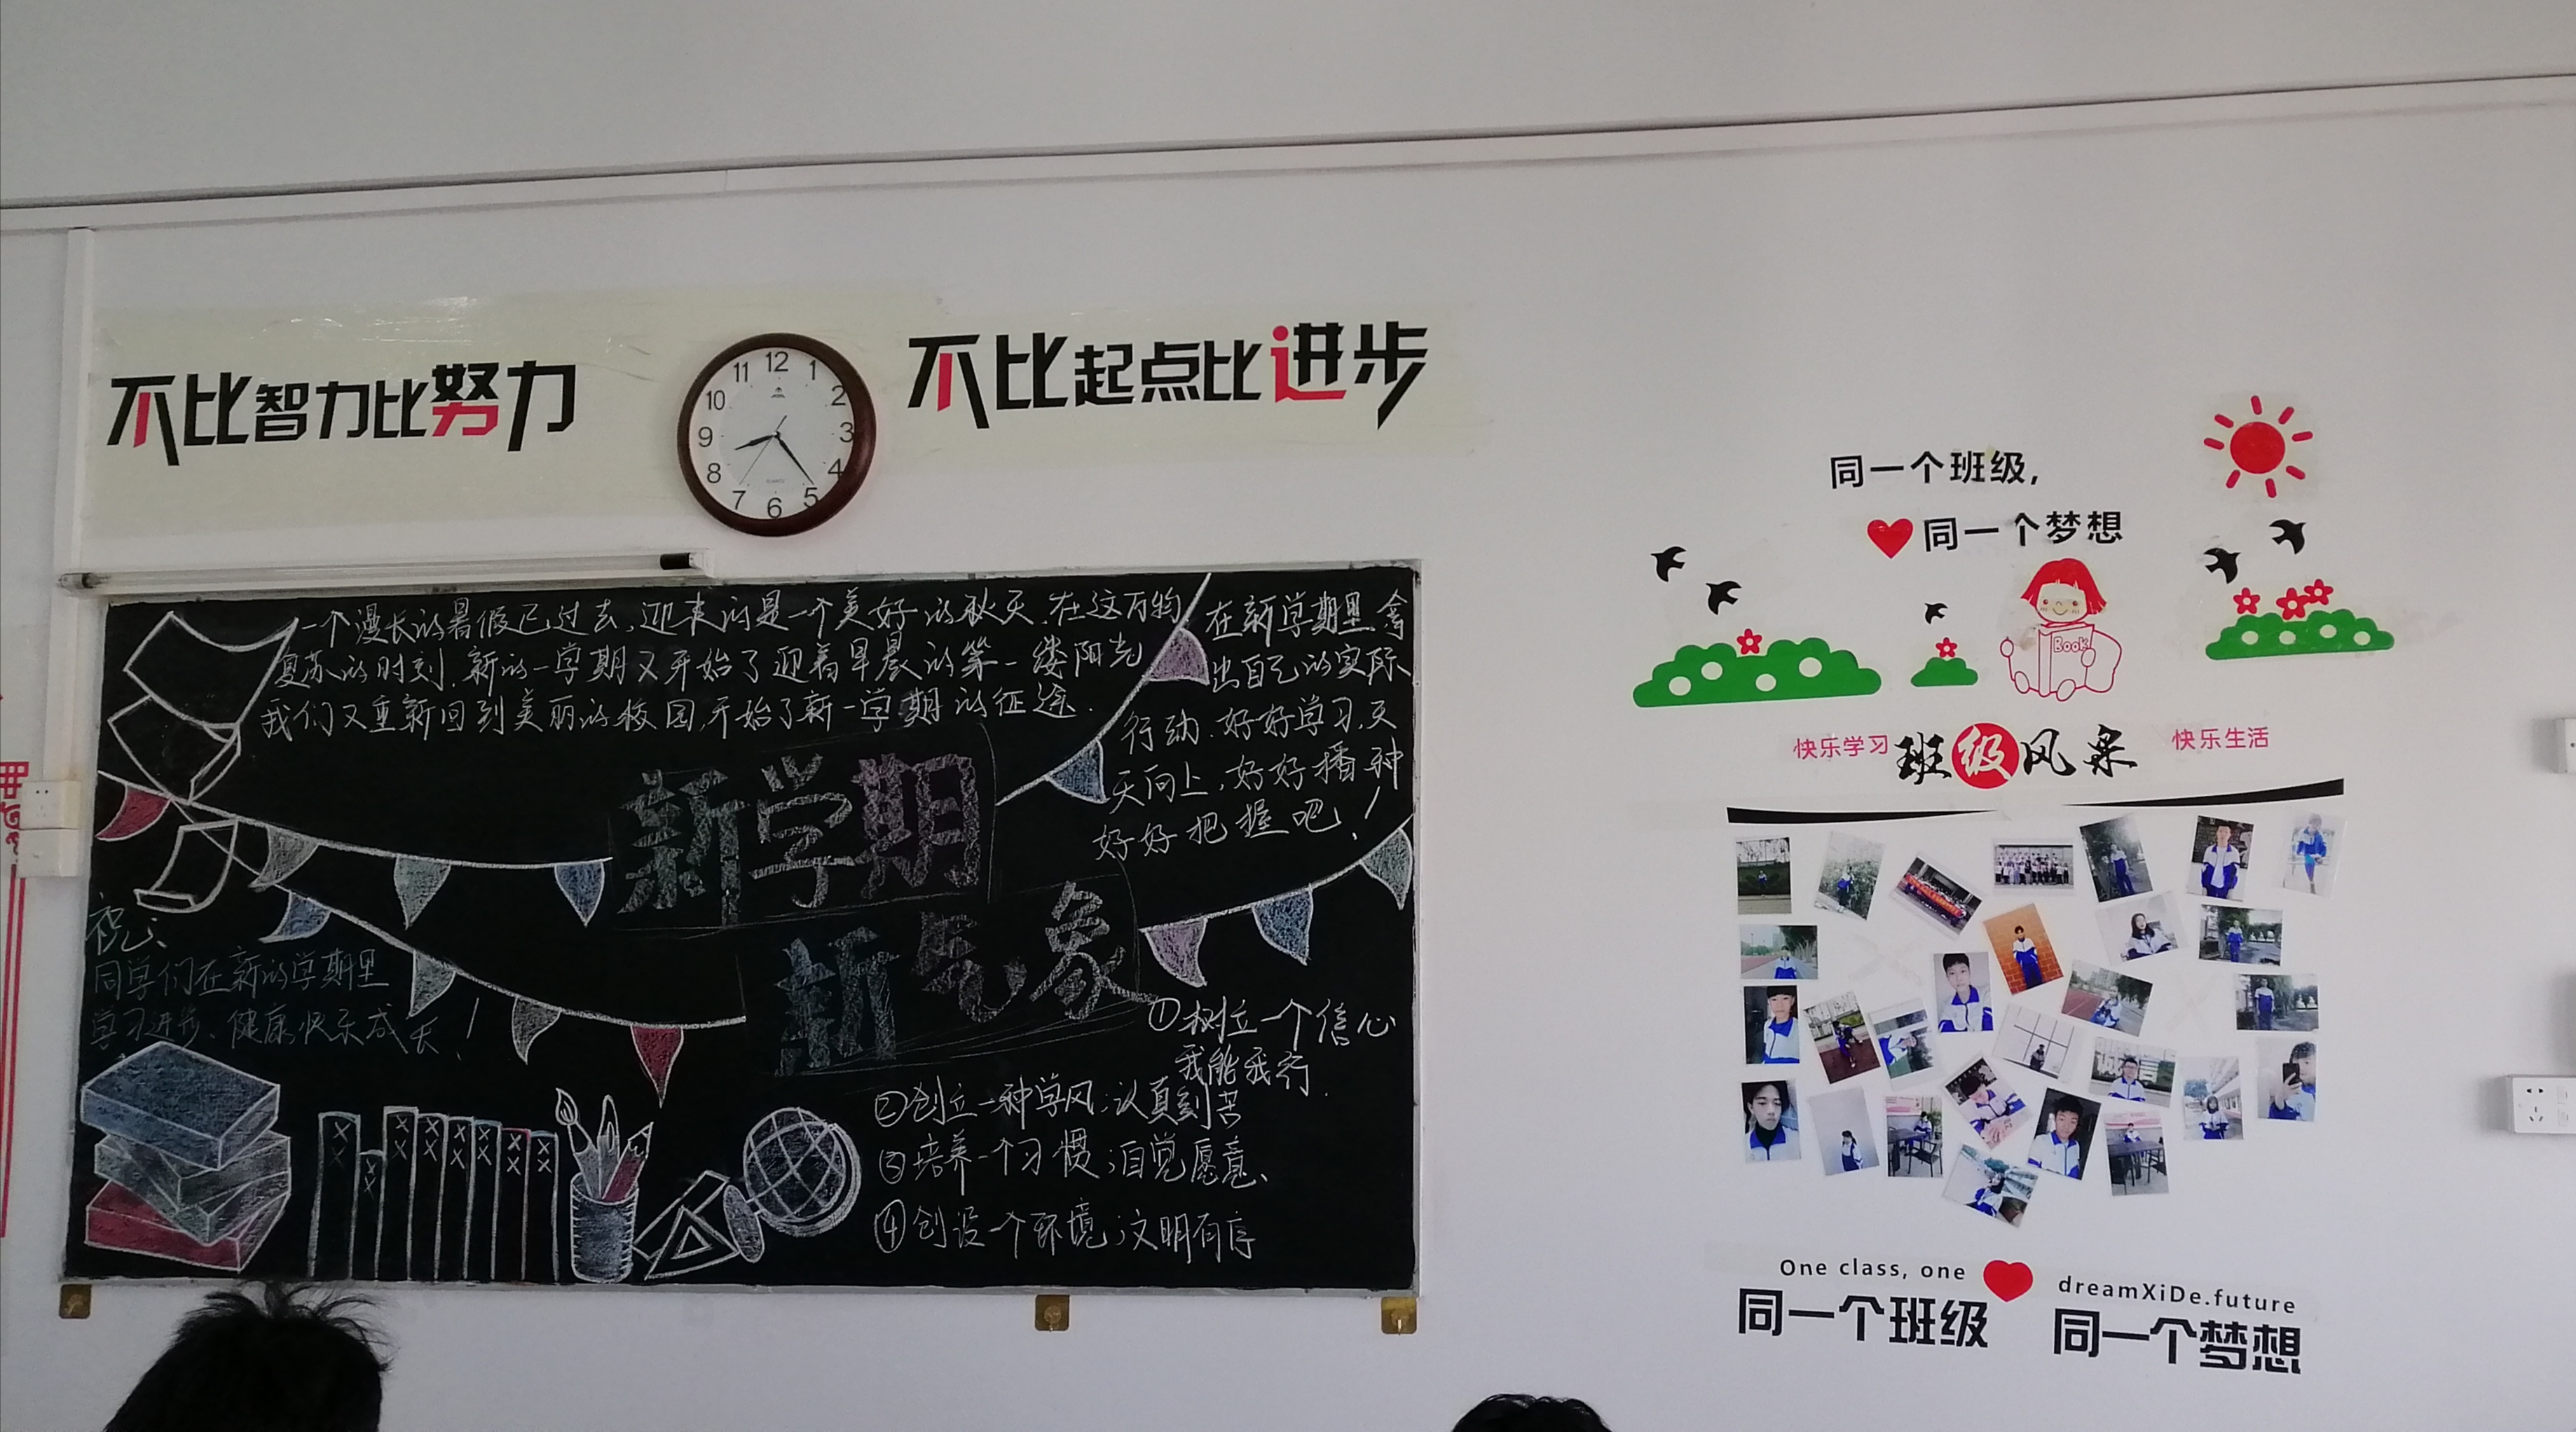 不比智力比努力
不比起点比进步
12
1
2
3
4
5
6
7
8
9
10
11
QUARTZ
一个漫长的暑假已过去,迎来的是一个美好的秋天.在这万物
复苏的时刻.新的一学期又开始了迎着早晨的第一缕阳光
我们又重新回到美丽的校园,开始了新一学期的征途.
在新学期里,拿
出自己的实际
行动.好好学习,天
天向上,好好播种
好好把握吧!
新学期
新气象
祝:
同学们在新的学期里
学习进步、健康快乐成长!
①树立一个信心
我能我行.
②创立一种学风;认真刻苦
③培养一个习惯;自觉愿意、
④创设一个环境;文明有序
同一个班级,
同一个梦想
Book
快乐学习
班级风采
快乐生活
One class, one
dreamXiDe.future
同一个班级
同一个梦想